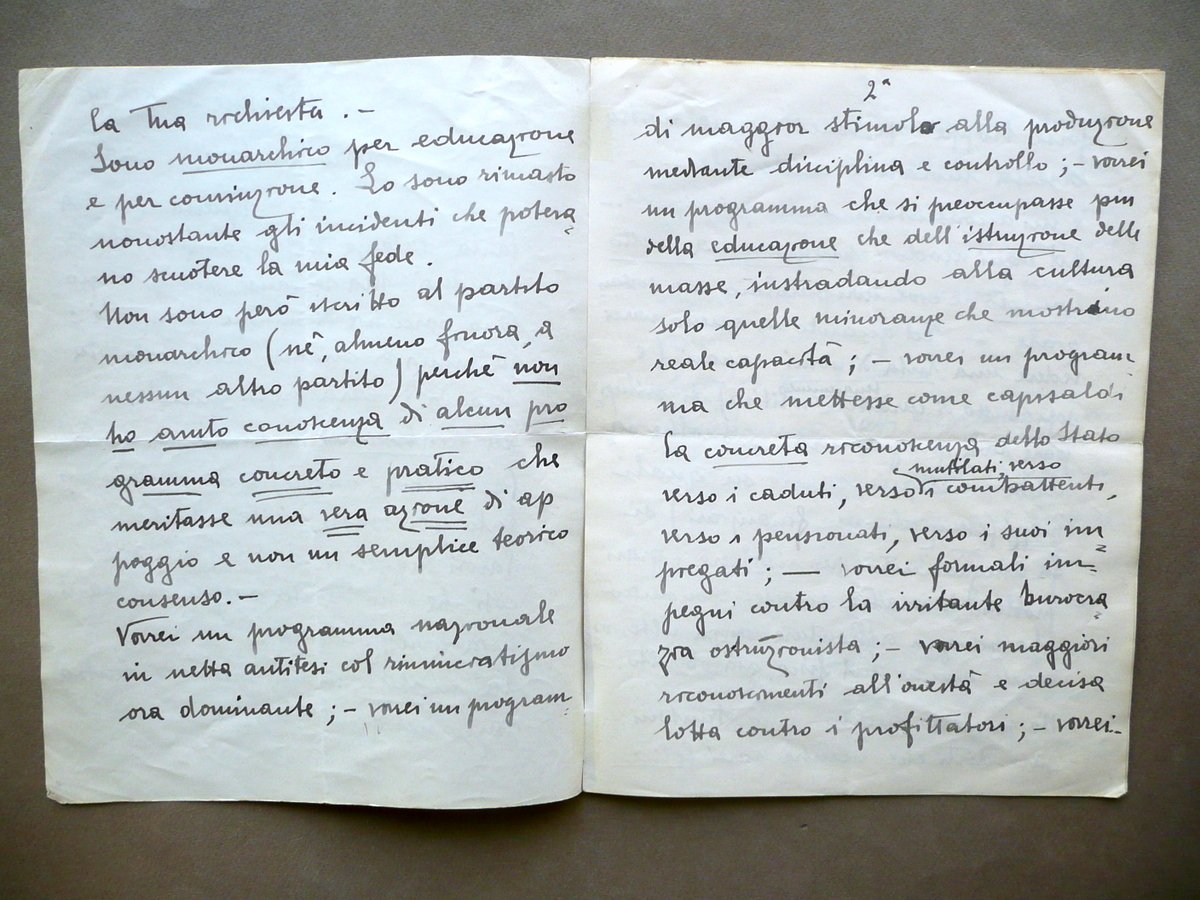 la Tua richiesta. –
Sono monarchico per educazione
e per convinzione. Lo sono rimasto
nonostante gli incidenti che poteva=
no scuotere la mia fede.
Non sono però iscritto al partito
monarchico (né, almeno finora, a
nessun altro partito) perché non
ho avuto conoscenza di alcun pro
gramma concreto e pratico che
meritasse una vera azione di ap
poggio e non un semplice teorico
consenso. –
Vorrei un programma nazionale
in netta antitesi col rinunciatismo
ora dominante; – vorrei un program=
2ª
di maggior stimolo alla produzione
mediante disciplina e controllo; – vorrei
un programma che si preoccupasse più
della educazione che dell'istruzione delle
masse, instradando alla cultura
solo quelle minoranze che mostrino
reale capacità; – vorrei un program=
ma che mettesse come capisaldi
la concreta riconoscenza dello Stato
mutilati, verso
verso i caduti, verso i combattenti,
verso i pensionati, verso i suoi im=
piegati; — vorrei formali im=
pegni contro la irritante burocra=
zia ostruzionista; – vorrei maggiori
riconoscimenti all'onestà e decisa
lotta contro i profittatori; – vorrei